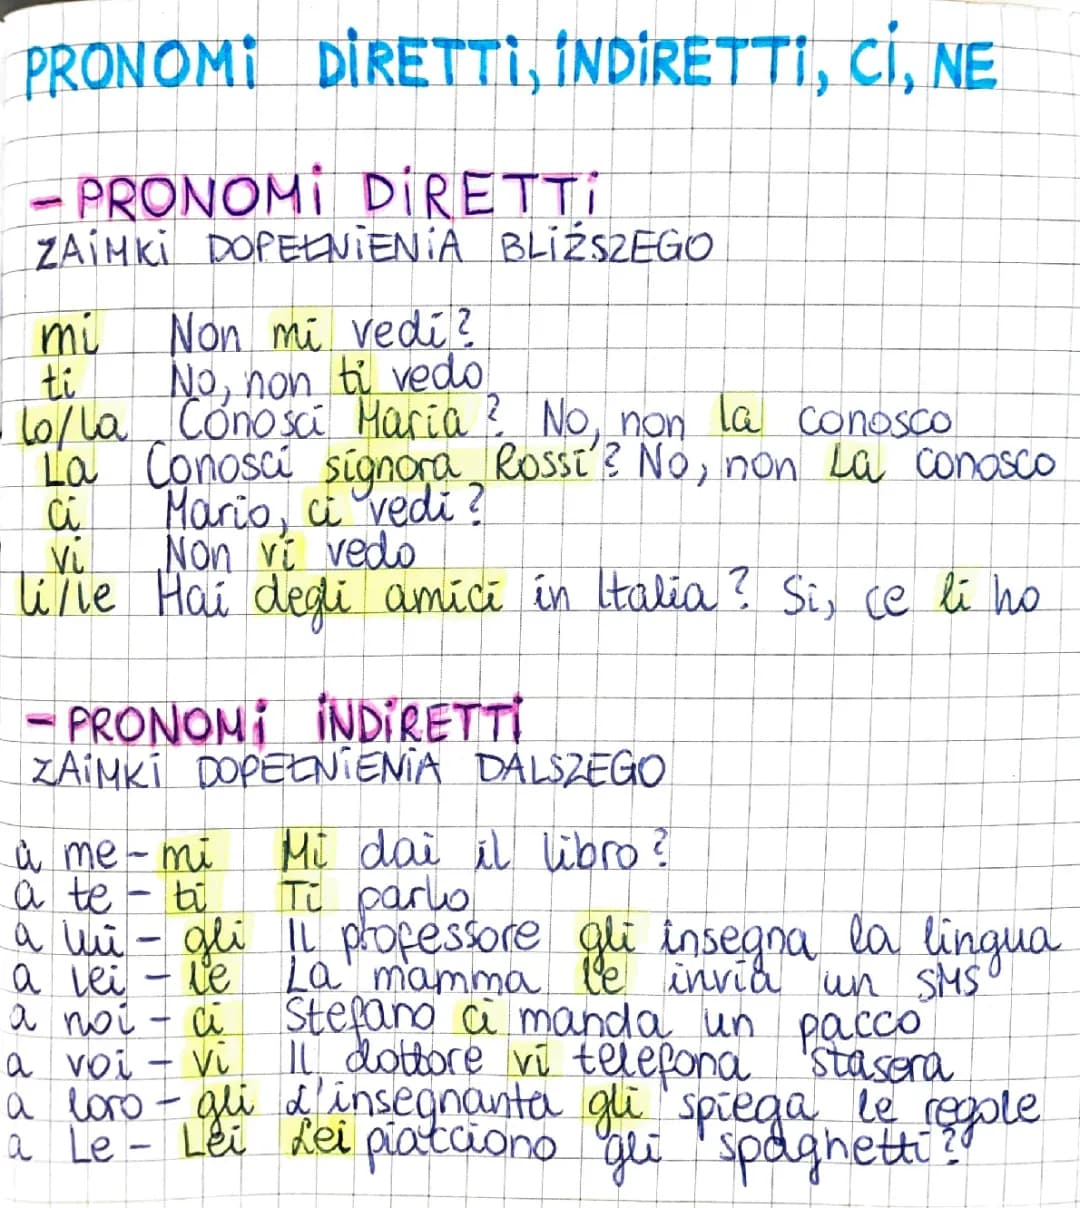 PRONOMi DiRETTi, iNDiRETTi, Ci, NE
- PRONOMi DiRETTi
ZAiMKi DOPEŁNiENiA BLiŻSZEGO
mi Non mi vedi?
ti No, non ti vedo
lo/la Conosci Maria? No, non la conosco
La Conosci signora Rossi? No, non La conosco
ci Mario, ci vedi?
vi Non vi vedo
li/le Hai degli amici in Italia? Si, ce li ho
- PRONOMi iNDiRETTi
ZAiMKi DOPEŁNiENiA DALSZEGO
a me - mi Mi dai il libro?
a te - ti Ti parlo
a lui - gli Il professore gli insegna la lingua
a lei - le La mamma le invia un SMS
a noi - ci Stefano ci manda un pacco
a voi - vi Il dottore vi telefona stasera
a loro - gli L'insegnanta gli spiega le regole
a Le - Lei Lei piacciono gli spaghetti?